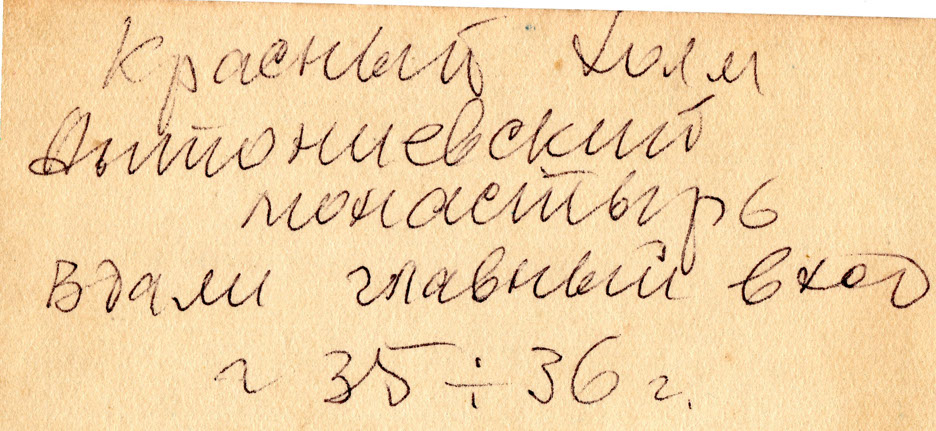 Красный Холм
Антониевский
монастырь
вдали главный вход
~ 35÷36 г.